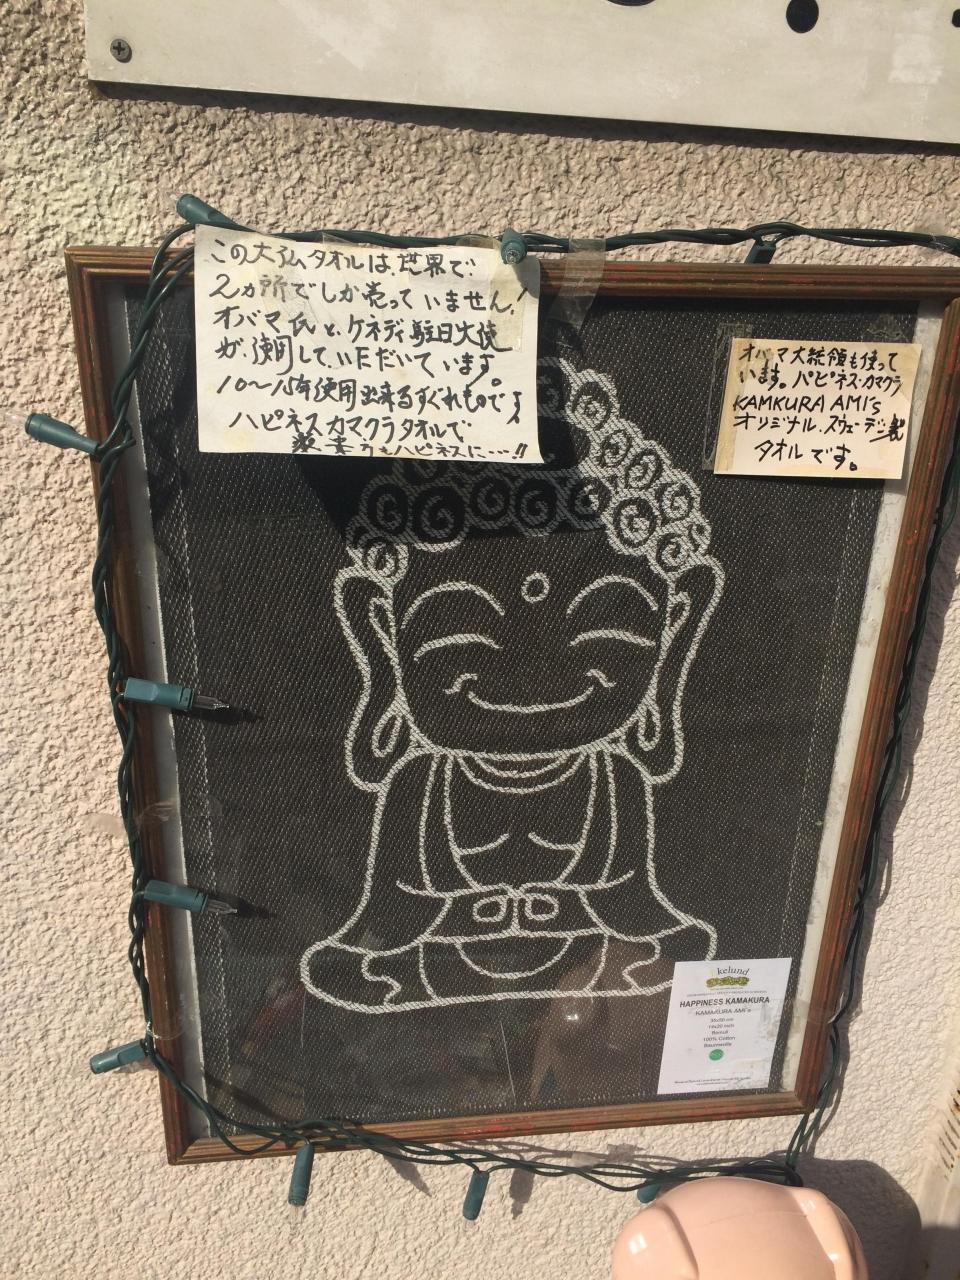 この大仏タオルは、世界で
2ヵ所でしか売っていません!
オバマ氏と、ケネディ駐日大使
が、使用して、いただいています。
10〜15年使用出来るすぐれものです
ハピネスカマクラタオルで
うもハピネスに…!!
オバマ大統領も使って
います。ハピネス・カマクラ
KAMKURA AMI's
オリジナル、スウェーデン製
タオルです。
kelund
HAPPINESS KAMAKURA
KAMAKURA AMI's
35x50 cm
14x20 inch
Bomull
100% Cotton
Baumwolle